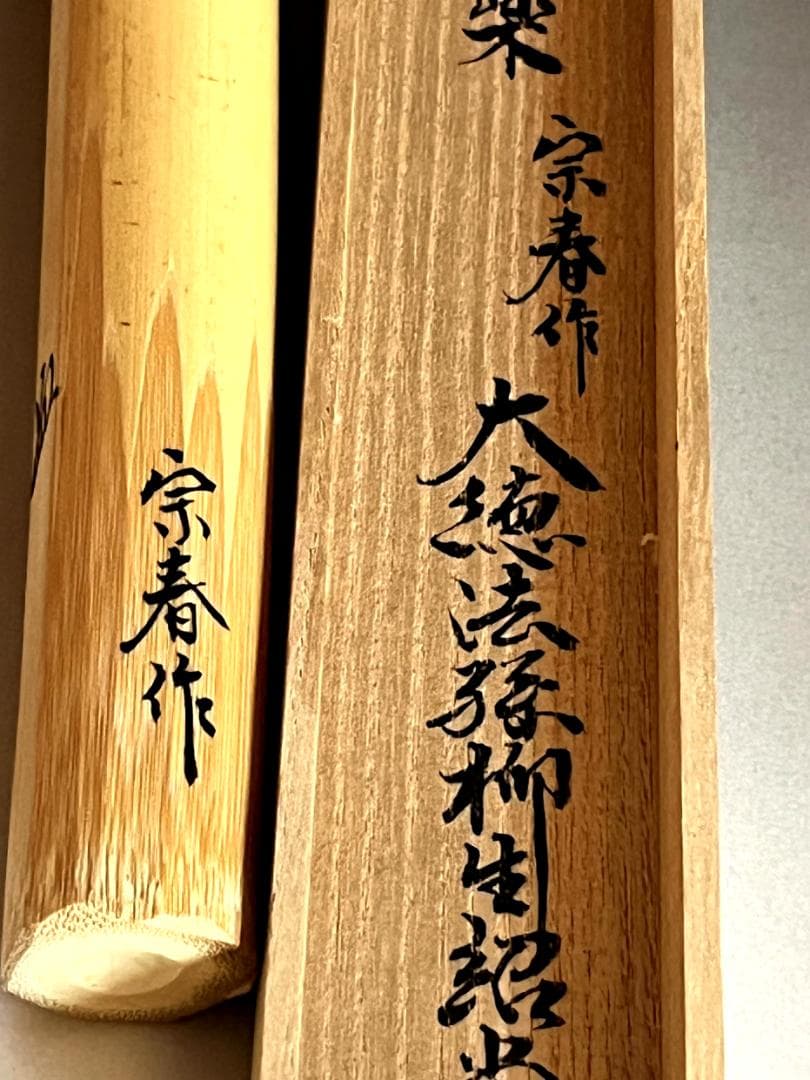 宗春作
大徳法孫柳生紹
宗春作